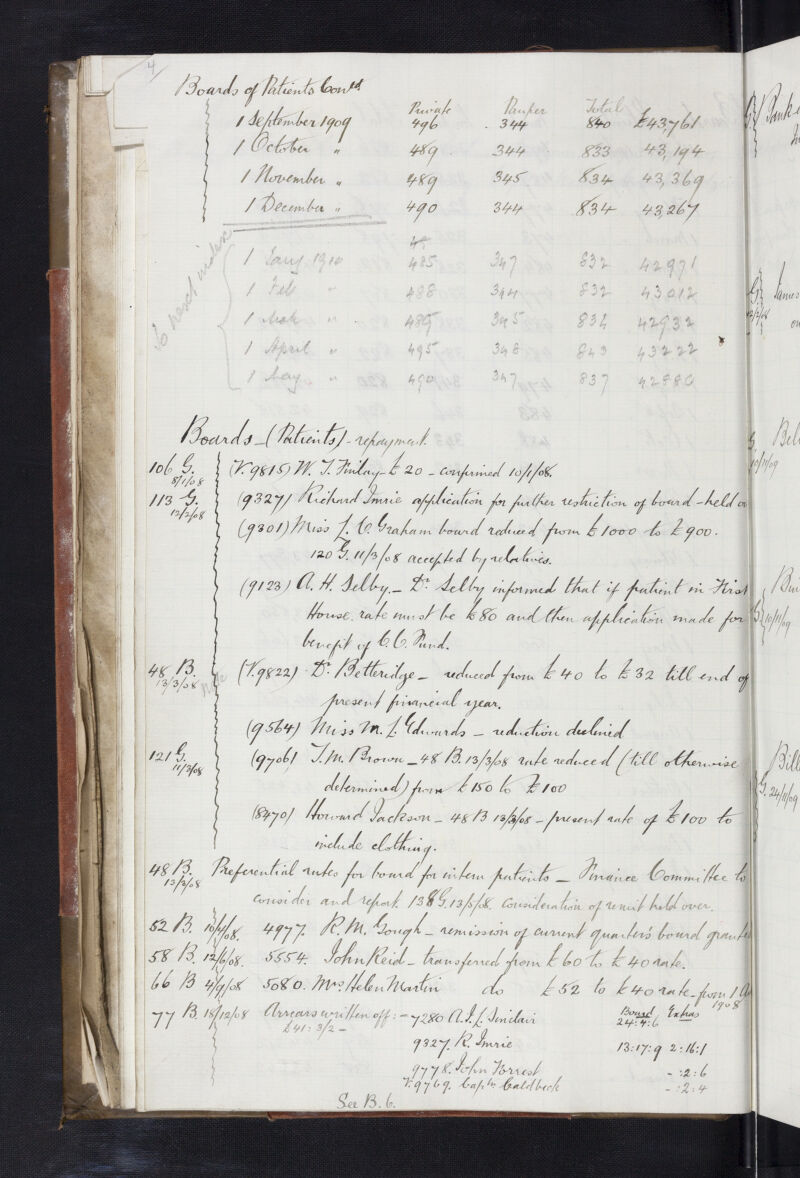 4
Boards of Patients Contd
Private Pauper Total
1 September 1909 496 344 840 £43,761
1 October " 489 344 833 43,194
1 November " 489 345 834 43,369
1 December " 490 344 834 43,267
To next index
1 Jany 1910 485 347 832 42971
1 Feb " 488 344 832 43012
1 Mch " 489 345 834 42932
1 April " 495 348 843 43222
1 May " 490 347 837 42880
Boards - (Patients) - repayment.
106 G. 8/1/08 (V. 9815) W. T. Finlay - £20 - confirmed 10/1/08.
113 G. 12/2/08 (9327) Richard Imrie application for further restriction of board - held
(9301) Miss J. C. Graham board reduced from £1000 to £900.
120 G. 11/3/08 accepted by relatives.
(9123) A. H. Selby. - Dr Selby informed that if patient in First
House, rate must be £80 and then application made for
benefit of C. C. Fund.
48 B. 13/3/08 (V. 9822) Dr Betteridge - reduced from £40 to £32 till end of
present financial year.
(9564) Miss M. J. Edwards - reduction declined
121 G. 11/3/08 (9706) J. M. Brown - 48 B. 13/3/08 rate reduced (till otherwise
determined) from £150 to £100
(8470) Howard Jackson - 48 B 13/3/08 - present rate of £100 to
include clothing.
48 B. 13/3/08 Preferential rates for board for intern patients - Finance Committee to
consider and report. 138 G. 13/5/08. consideration of remit held over.
52 B. 10/4/08. 4977. R. M. Gough - remission of current quarter's board
58 B. 12/6/08. 5554. John Reid - transferred from £60 to £40 rate.
66 B 4/9/08 5080. Mrs Helen Martin do £52 to £40 rate - from 1
1908
Board Extras
77 B 18/12/08 Arrears written off: - 7280 A. J. J. Sinclair 24:4:6
£41:3/2 -
9327. R. Imrie 13:17:9 2:16:1
9778. John Forrest - :2:6
V. 9769. Captn Caldbeck - :2:4
See B. 6.